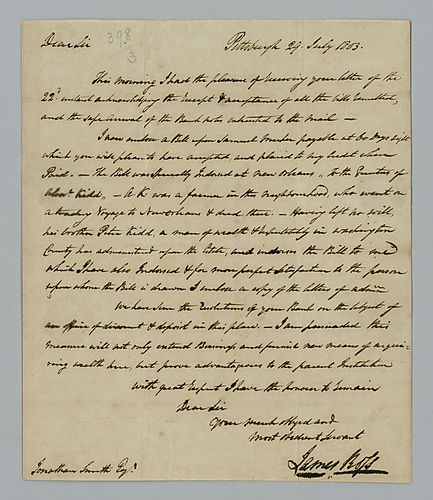 Dear Sir
398
Pittsburgh 29 July 1803.
This Morning I had the pleasure of receiving your letter of the
22d instant acknowledging the receipt & acceptance of all the bills remitted,
and the safe arrival of the Bank notes intrusted to the Mail —
I now enclose a Bill upon Samuel payable at 60 days sight
which you will please to have accepted, and placed to my credit when
Paid. — The Bill was specially Indorsed at new orleans, "to the Executors of
Alexr. Kidd" — A K was a farmer in this neighbourhood, who went on
a trading Voyage to New Orleans & died there. — Having left no will,
his brother Peter Kidd, a man of wealth & respectability in Washington
County has administered upon the Estate, and indorses the Bill to me
which I have also Indorsed & for more perfect satisfaction to the person
upon whom the Bill is drawn I enclose a copy of the letters of admin
We have seen the resolutions of your Bank on the subject of
an office of discount & deposit in this place. — I am persuaded this
measure will not only extend Business and furnish new means of acqui-
ring wealth here, but prove advantageous to the parent Institution
With great respect I have the honour to remain
Dear Sir
Your much obliged and
most obedient Servant
James Ross
Jonathan Smith Esqr.